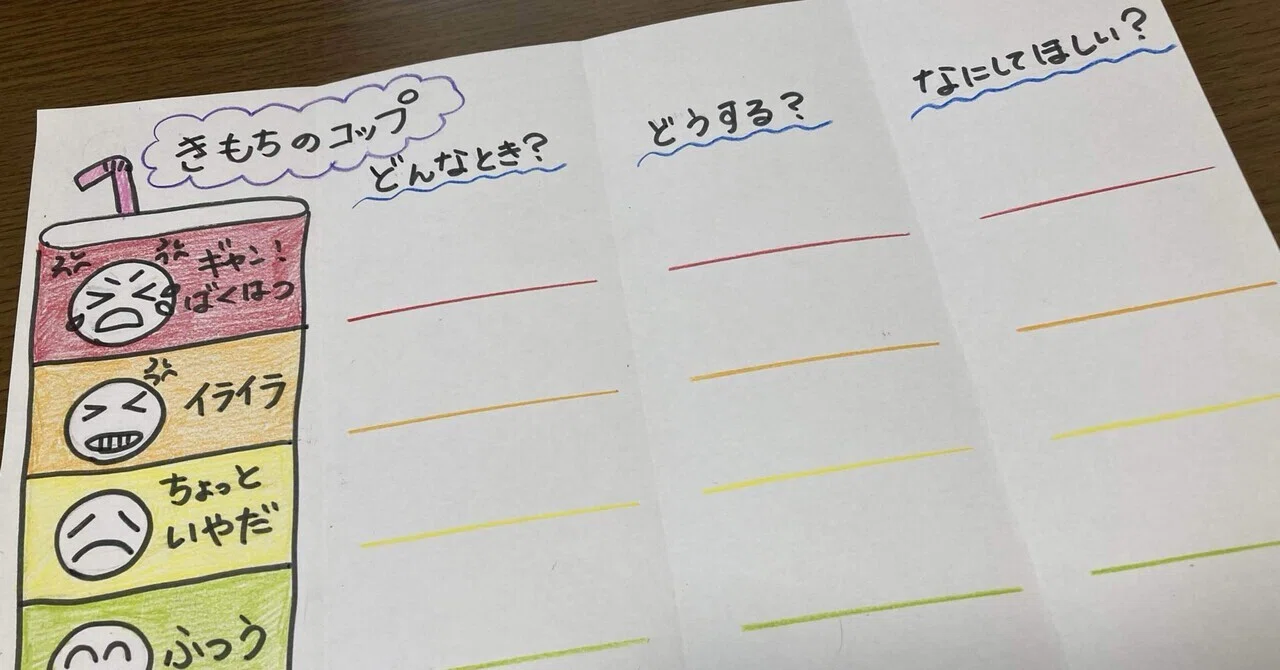 きもちのコップ
どんなとき?
どうする?
なにしてほしい?
ギャン!
ばくはつ
イライラ
ちょっと
いやだ
ふつう